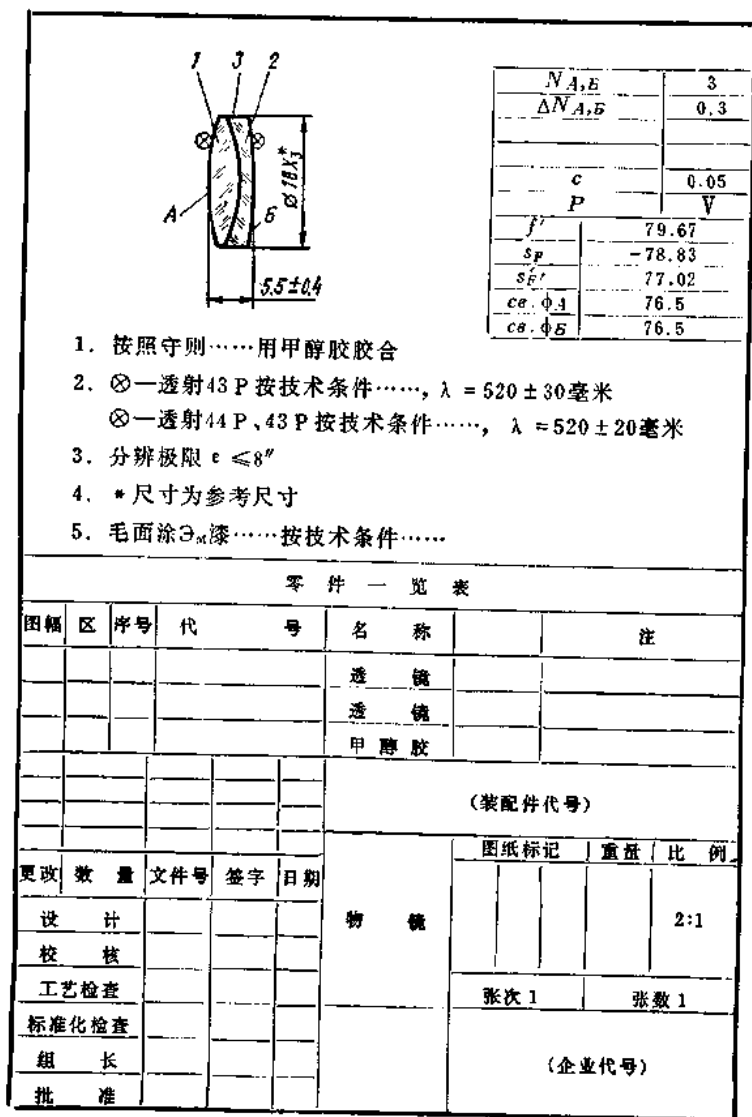 1 3 2
A
Б
Ø18X₃*
5.5±0.4
N A,Б 3
ΔN A,Б 0.3
c 0.05
P V
f′ 79.67
s_F −78.83
s_F′′ 77.02
св.ϕA 76.5
св.ϕБ 76.5
1. 按照守则……用甲醇胶胶合
2. ⊗—透射43 P 按技术条件……, λ = 520 ± 30毫米
⊗—透射44 P、43 P 按技术条件……, λ = 520 ± 20毫米
3. 分辨极限 ε ≤8″
4. * 尺寸为参考尺寸
5. 毛面涂Эм漆……按技术条件……
零件一览表
图幅 区 序号 代号 名称 注
透镜
透镜
甲醇胶
(装配件代号)
图纸标记 重量 比例
更改 数量 文件号 签字 日期
设计 物镜 2:1
校核
工艺检查 张次 1 张数 1
标准化检查
组长 (企业代号)
批准